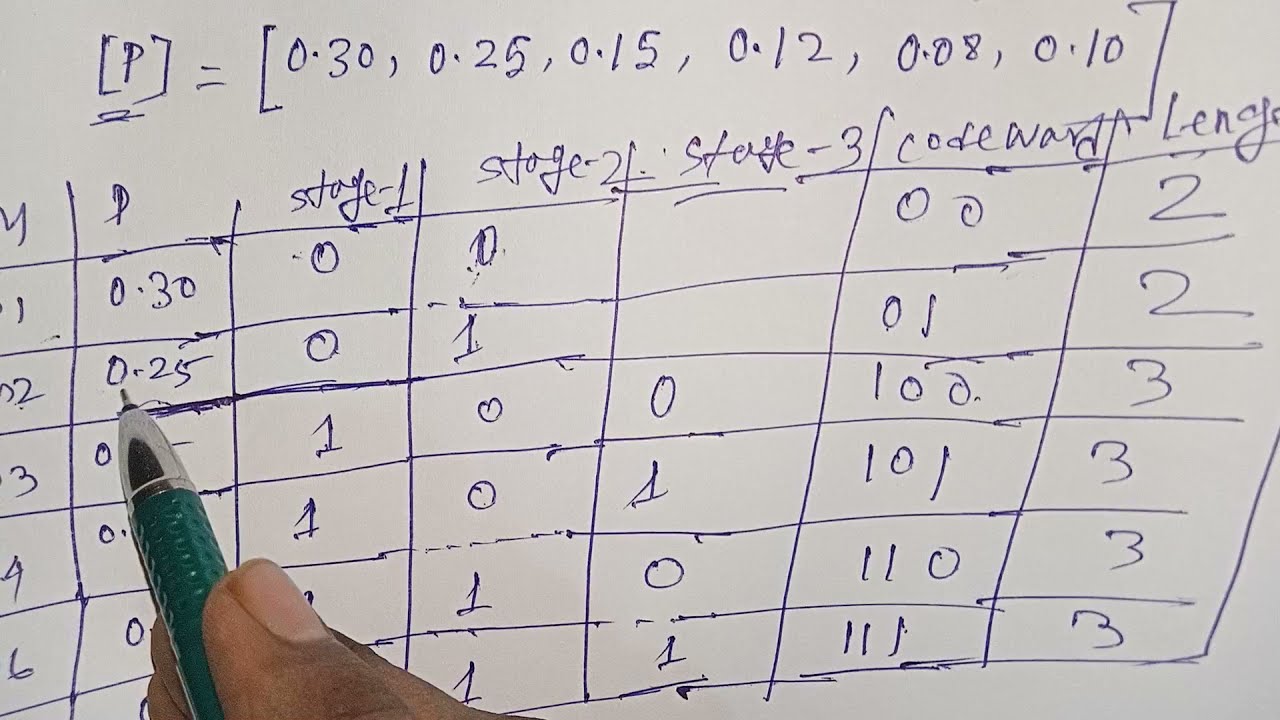 [P] = [0.30, 0.25, 0.15, 0.12, 0.08, 0.10]
P stage-1 stage-2 stage-3 codeward Leng
1 0.30 0 0 00 2
2 0.25 0 1 01 2
3 0. 1 0 0 100 3
4 0. 1 0 1 101 3
1 0 110 3
6 0 1 1 111 3